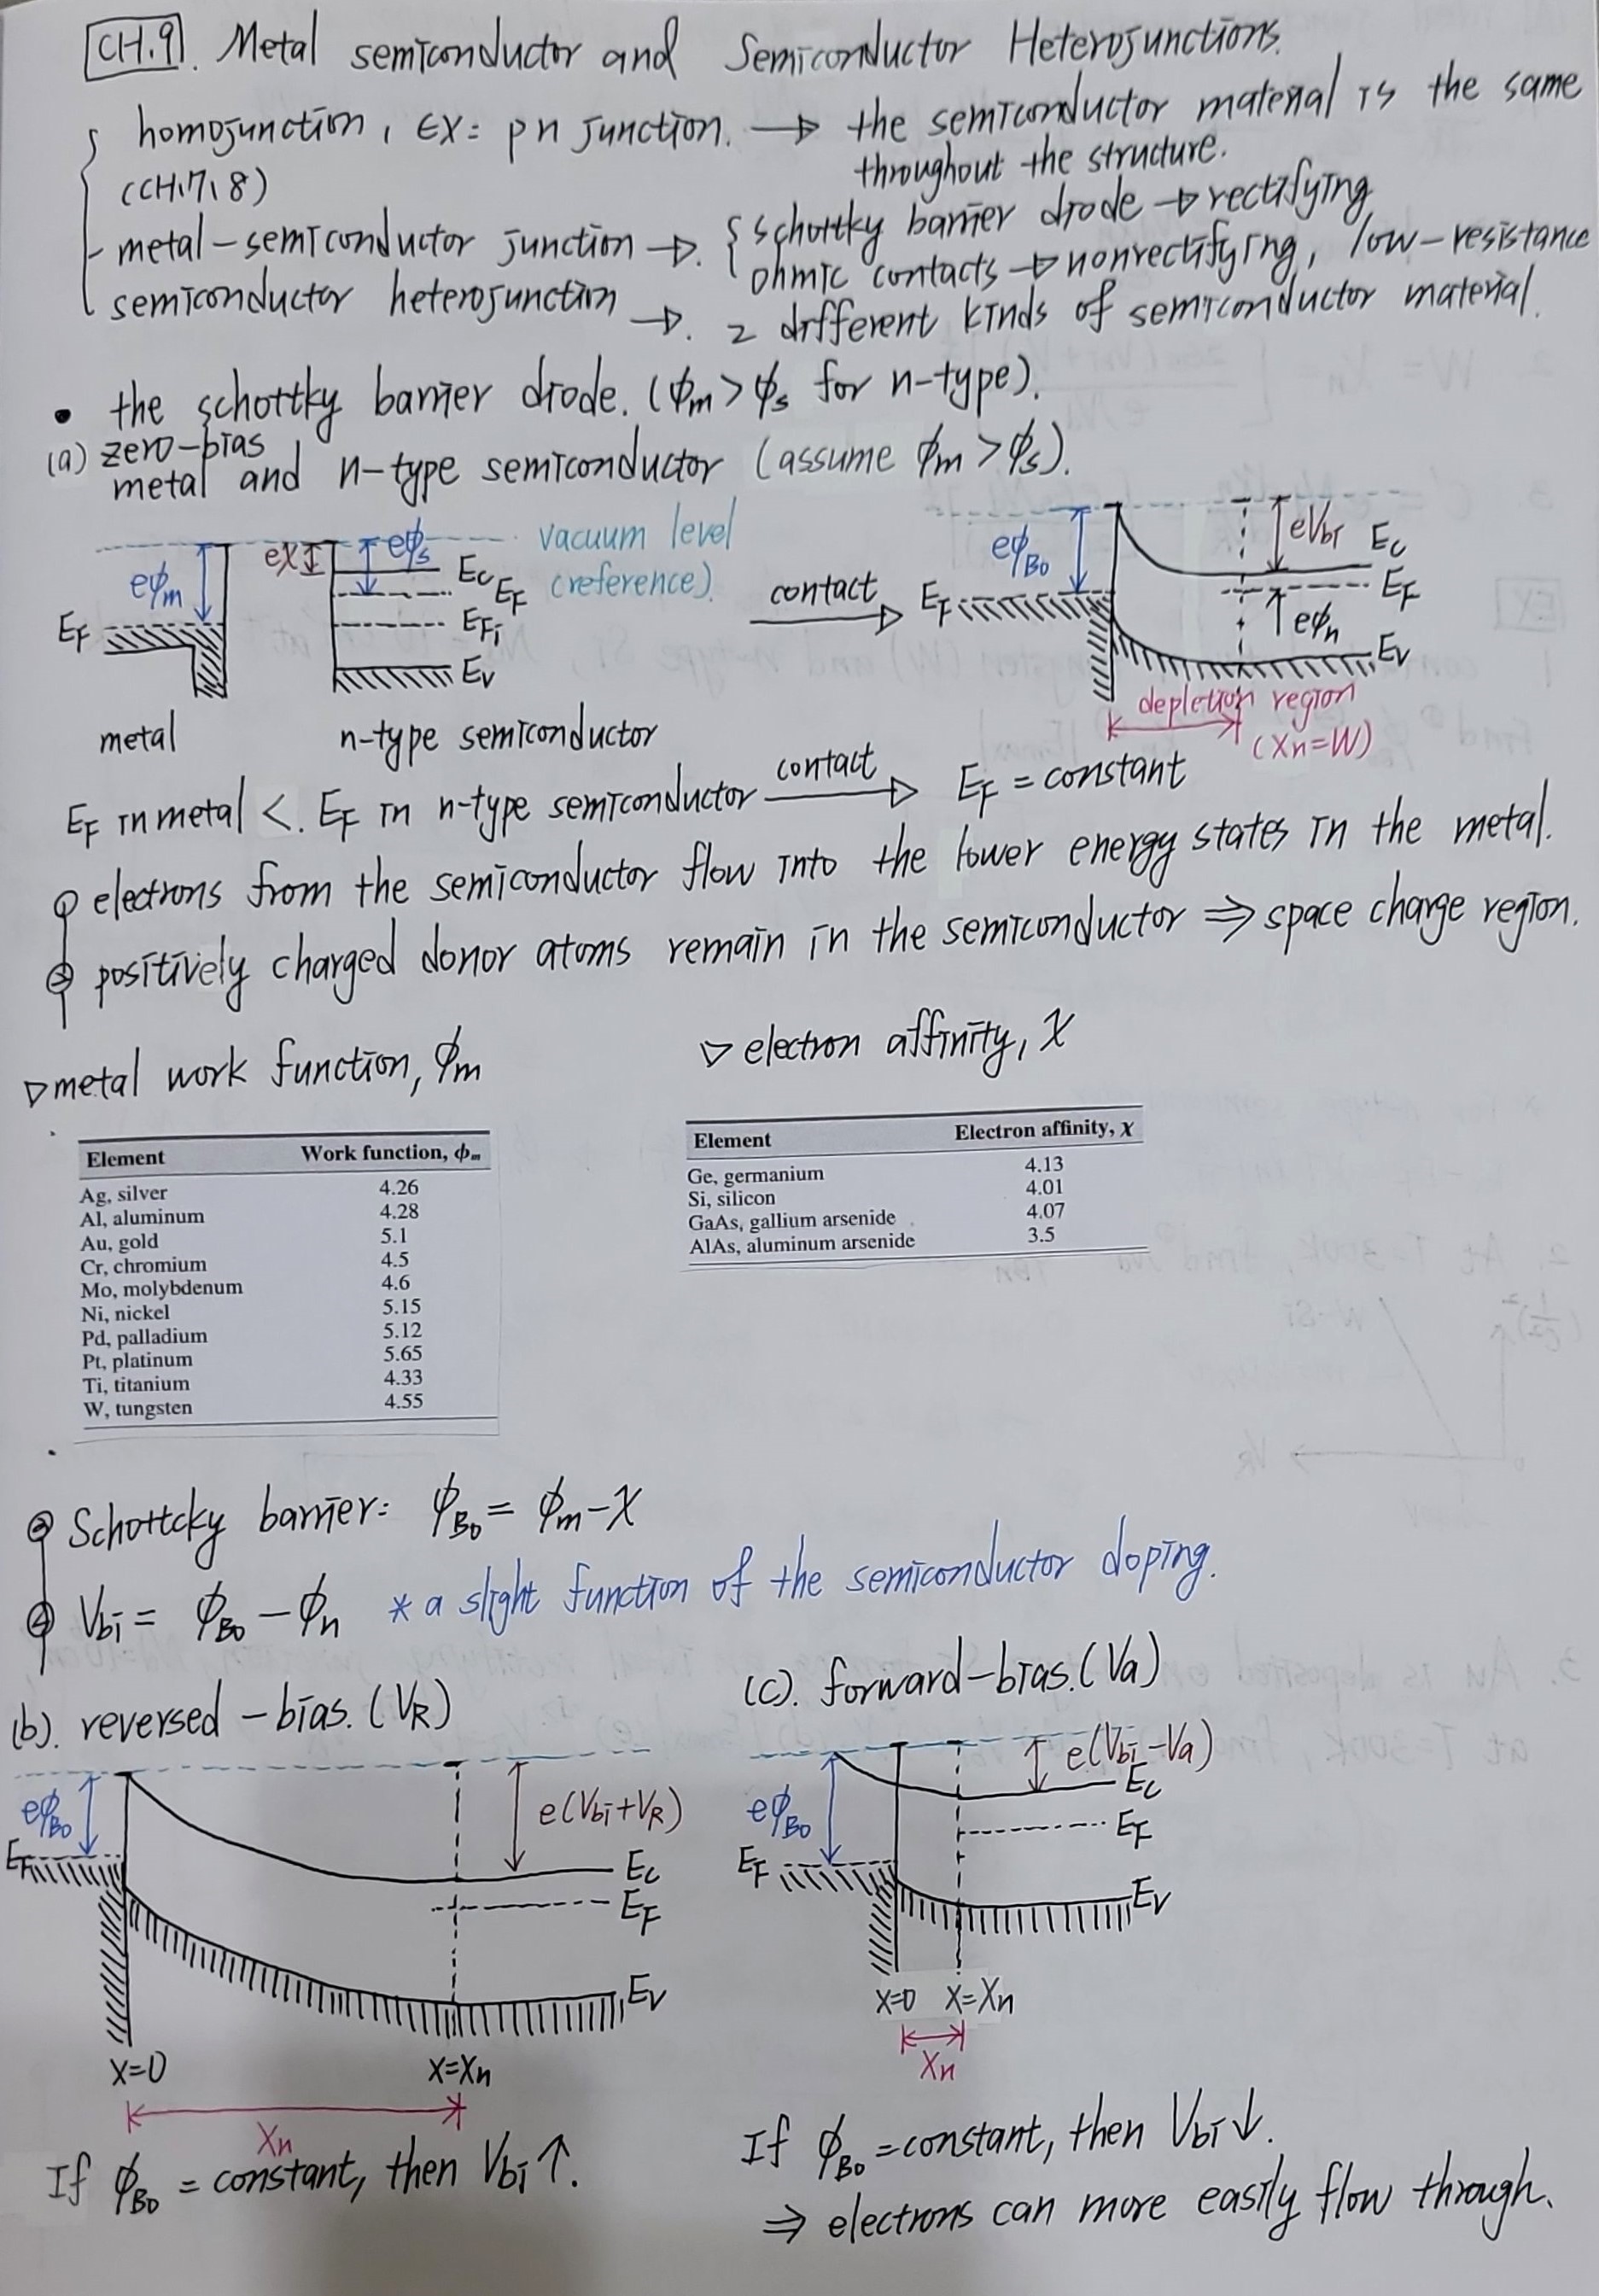 CH.9. Metal semiconductor and Semiconductor Heterojunctions.
homojunction, EX= pn junction. → the semiconductor material is the same
throughout the structure.
(CH.7.8)
metal-semiconductor junction → { schottky barrier diode → rectifying
ohmic contacts → nonrectifying, low-resistance
semiconductor heterojunction → 2 different kinds of semiconductor material.
• the schottky barrier diode. (ϕm > ϕs for n-type).
(a) zero-bias
metal and n-type semiconductor (assume ϕm > ϕs).
eϕm
EF
metal
eχ
eϕs
Ec
EF
EFi
Ev
n-type semiconductor
vacuum level
(reference).
contact →
eϕB0
EF
eVbi
Ec
EF
eϕn
Ev
depletion region
(Xn=W)
EF in metal < . EF in n-type semiconductor contact → EF = constant
① electrons from the semiconductor flow into the lower energy states in the metal.
② positively charged donor atoms remain in the semiconductor ⇒ space charge region.
▷ metal work function, ϕm
Element Work function, ϕm
Ag, silver 4.26
Al, aluminum 4.28
Au, gold 5.1
Cr, chromium 4.5
Mo, molybdenum 4.6
Ni, nickel 5.15
Pd, palladium 5.12
Pt, platinum 5.65
Ti, titanium 4.33
W, tungsten 4.55
▷ electron affinity, χ
Element Electron affinity, χ
Ge, germanium 4.13
Si, silicon 4.01
GaAs, gallium arsenide 4.07
AlAs, aluminum arsenide 3.5
③ Schottcky barrier: ϕB0 = ϕm-χ
④ Vbi = ϕB0 - ϕn * a slight function of the semiconductor doping.
(b). reversed-bias. (VR)
eϕB0
EF
e(Vbi+VR)
Ec
EF
Ev
X=0 X=Xn
Xn
If ϕB0 = constant, then Vbi ↑.
(c). forward-bias. (Va)
eϕB0
EF
e(Vbi-Va)
Ec
EF
Ev
X=0 X=Xn
Xn
If ϕB0 = constant, then Vbi ↓.
⇒ electrons can more easily flow through.